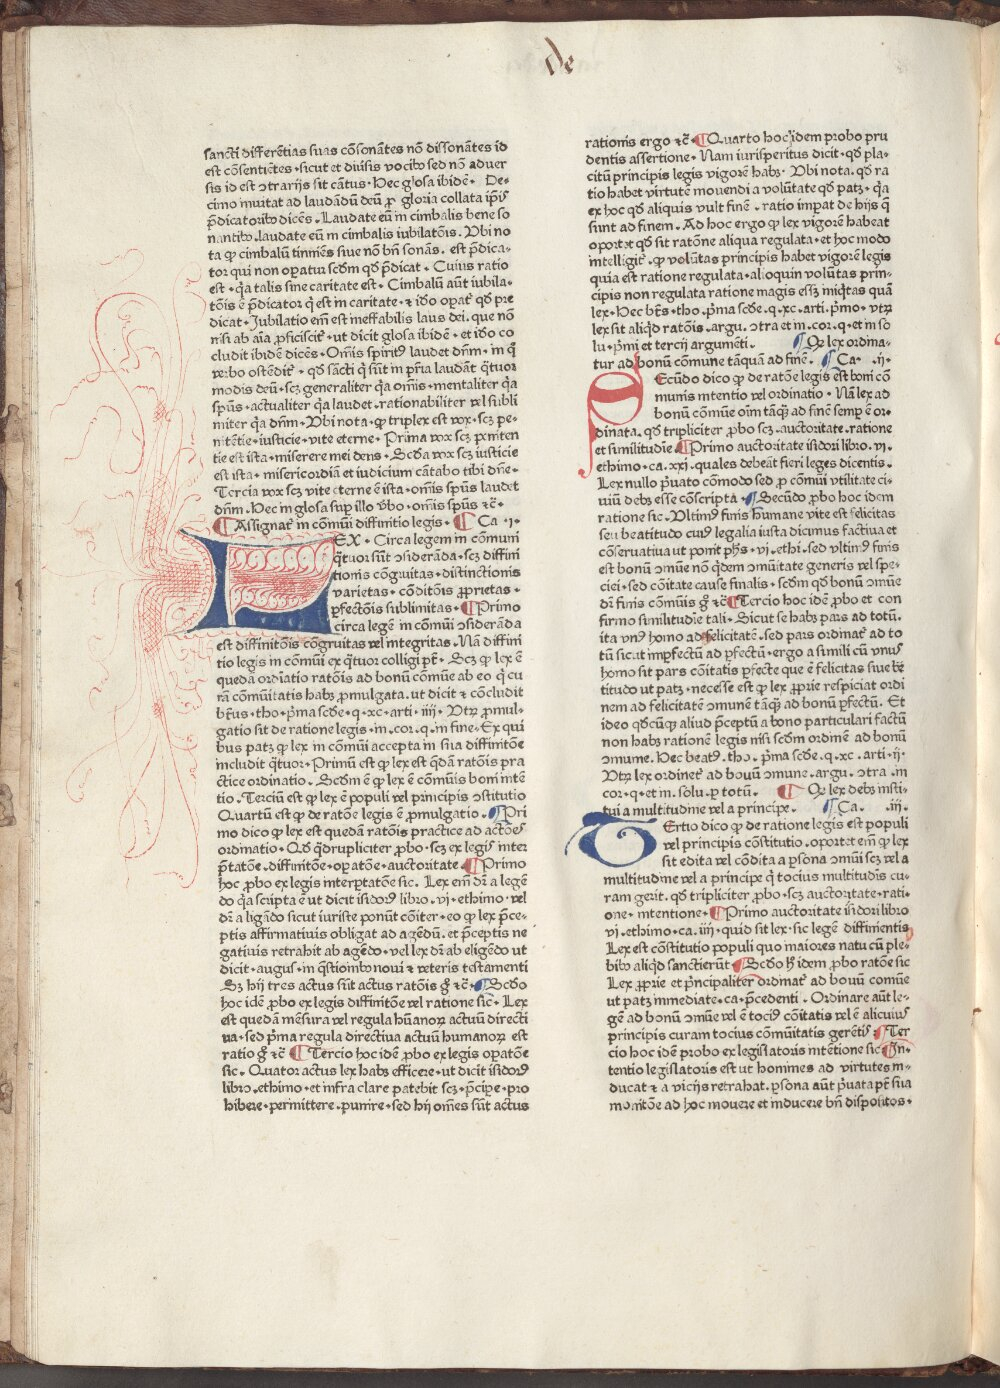 De
sancti differētias suas cōsonātes nō dissonātes id
est cōsentiētes · sicut et diuisis vocibꝰ sed nō aduer
sis id est ↄtrarijs sit cātus · Hec glosa ibidē · De-
cimo inuitat ad laudādū deū ꝓ gloria collata ip̄is
p̄dicatoribꝰ dicēs . Laudate eū in cimbalis bene so
nantibꝰ .laudate eū in cimbalis iubilatōis . Vbi no
ta ꝙ cimbalū tinniēs siue nō bn̄ sonās . est p̄dica-
tor qui non oꝑatur scd̄m qd̄ p̄dicat · Cuius ratio
est · q̄a talis sine caritate est · Cimbalū aūt iubila-
tōis ē p̄dicator q̄ est in caritate · & idō oꝑat̄ qd̄ pre
dicat · Jubilatio em̄ est ineffabilis laus dei . que nō
nisi ab aīa ꝓficiscit̄ · ut dicit glosa ibidē · et idō co
cludit ibidē dicēs · Om̄is spiritꝰ laudet dn̄m · in q̄
verbo ostēdit̄ · qd̄ sācti q̄ sūt in pr̄ia laudāt q̄tuor
modis deū · scꝫ generaliter q̄a om̄is · mentaliter q̄a
sp̄us · actualiter q̄a laudet . rationabiliter vel subli
miter q̄a dn̄m · Vbi nota · ꝙ triplex est vox · scꝫ pe-
nitētie · iusticie · vite eterne · Prima vox scꝫ peniten
tie est ista · miserere mei deus · Scd̄a vox scꝫ iusticie
est ista · misericordiā et iudicium cātabo tibi dn̄e ·
Tercia vox scꝫ vite eterne ē ista . om̄is sp̄us laudet
dn̄m . Hec in glosa sup illo v̄bo · om̄is sp̄us &c̄ ·
¶ Assignat̄ in cōmuni diffinitio legis · ¶ Ca · i ·
LEX · Circa legem in cōmuni
q̄tuor sūt ↄsiderāda · scꝫ diffini
tionis cōgruitas · distinctionis
varietas · cōditōis ꝓprietas ·
ꝑfectōis sublimitas · ¶ Primo
circa legē in cōmūi ↄsiderāda
est diffinitōis cōgruitas vel integritas . Nā diffini
tio legis in cōmūi ex q̄tuor colligi pt̄ · Scꝫ ꝙ lex ē
quedā ordīatio ratōis ad bonū cōmūe ab eo q̄ cu
rā cōmūitatis habꝫ ꝓmulgata. ut dicit & cōcludit
bt̄us · tho · p̄ma scd̄e · q · xc · arti · iiij · Vtꝝ ꝓmul-
gatio sit de ratione legis · in · cor · q · in fine · Ex qui
bus patꝫ ꝙ lex in cōmūi accepta in sua diffinitōe
includit q̄tuor · Primū est ꝙ lex est q̄dā ratōis pra
ctice ordinatio . Scd̄m ē ꝙ lex ē cōmūis boni intē
tio · Terciū est ꝙ lex ē populi vel principis ↄstitutio
Quartū est ꝙ de ratōe legis ē ꝓmulgatio . ¶ Pri
mo dico ꝙ lex est quedā ratōis practice ad actōes
ordinatio · Qd̄ q̄drupliciter ꝓbo · scꝫ ex legis inter
p̄tatōe .diffinitōe · oꝑatōe · auctoritate . ¶ Primo
hoc ꝓbo ex legis interp̄tatōe sic . Lex em̄ dr̄ a legē
do q̄a scripta ē ut dicit isidorꝰ libro . vj · ethimo · vel
dr̄ a ligādo sicut iuriste ponūt cōiter · eo ꝙ lex p̄ce-
ptis affirmatiuis obligat ad agēdū . et p̄ceptis ne
gatiuis retrahit ab agēdo · vel lex dr̄ ab eligēdo ut
dicit · augus̄ · in q̄stionibꝰ noui & veteris testamenti
Sꝫ hij tres actus sūt actus ratōis g̊ &c̄ · ¶ Scd̄o
hoc idē ꝓbo ex legis diffinitōe vel ratione sic · Lex
est quedā mēsura vel regula hūanoꝝ actuū directi
ua · sed p̄ma regula directiua actuū humanoꝝ est
ratio g̊ &c̄ ¶ Tercio hoc idē ꝓbo ex legis oꝑatōe
sic . Quatuor actus lex habꝫ efficere · ut dicit isidorꝰ
libro .ethimo · et infra clare patebit scꝫ · p̄cipe · pro
hibere · permittere . punire · sed hij om̄es sūt actus
rationis ergo &c̄ · ¶ Quarto hoc idem probo pru
dentis assertione · Nam iurisperitus dicit · qd̄ pla-
citū principis legis vigorē habꝫ · Vbi nota . qd̄ ra
tio habet virtutē mouendi a volūtate qd̄ patꝫ · q̄a
ex hoc qd̄ aliquis vult finē . ratio imꝑat de hijs q̄
sunt ad finem . Ad hoc ergo ꝙ lex vigorē habeat
oportet qd̄ sit ratōne aliqua regulata · et hoc modo
intelligit̄ . ꝙ volūtas principis habet vigorē legis
quia est ratione regulata · alioquin volūtas prin-
cipis non regulata ratione magis essꝫ iniq̄tas quā
lex · Hec bt̄s · tho · p̄ma scd̄e · q · xc · arti · p̄mo · vtꝝ
lex sit aliq̄d ratōis . argu . ↄtra et in . cor · q · et in so
lu · p̄mi et tercij argumēti . ¶ Qꝫ lex ordina-
tur ad bonū cōmune tāquā ad finē . ¶ Ca · ij ·
Secūdo dico ꝙ de ratōe legis est boni cō
munis intentio vel ordinatio · Nā lex ad
bonū cōmūe oīm tāqꝫ ad finē semꝑ ē or-
dinata . qd̄ tripliciter ꝓbo scꝫ . auctoritate . ratione
et similitudīe . ¶ Primo auctoritate isidori libro . vj .
ethimo · ca . xxj . quales debeāt fieri leges dicentis .
Lex nullo p̄uato cōmodo sed ꝓ cōmūi vtilitate ci-
uiū debꝫ esse cōscripta · ¶ Secūdo ꝓbo hoc idem
ratione sic · Vltimꝰ finis humane vite est felicitas
seu beatitudo cuiꝰ legalia iusta dicimus factiua et
cōseruatiua ut ponit ph̄s · vj . ethi . sed vltimꝰ finis
est bonū ↄmūe nō q̄dem ↄmūitate generis vel spe-
ciei · sed cōitate cause finalis · scd̄m qd̄ bonū ↄmūe
dr̄ finis cōmūis g̊ &c̄ ¶ Tercio hoc idē ꝓbo et con
firmo similitudīe tali · Sicut se habꝫ pars ad totū .
ita vnꝰ homo ad felicitatē . sed pars ordinat̄ ad to
tū sicut imꝑfectū ad ꝑfectū · ergo a simili cū vnꝰ
homo sit pars cōitatis ꝑfecte que ē felicitas siue be
titudo ut patꝫ · necesse est ꝙ lex ꝓprie respiciat ordi
nem ad felicitatē ↄmunē tāqꝫ ad bonū ꝑfectū . Et
ideo qd̄cūqꝫ aliud p̄ceptū a bono particulari factū
non habꝫ rationē legis nisi scd̄m ordinē ad bonū
ↄmune . Hec beatꝰ . tho · p̄ma scd̄e . q · xc · arti · ij ·
Vtꝝ lex ordinet̄ ad bonū ↄmune . argu . ↄtra . in
cor · q · et in . solu . ꝑ totū . ¶ Qꝫ lex debꝫ insti-
tui a multitudine vel a principe . ¶ Ca . iij .
Tertio dico ꝙ de ratione legis est populi
vel principis cōstitutio . oportet em̄ ꝙ lex
sit edita vel cōdita a ꝑsona ↄmūi scꝫ vel a
multitudine vel a principe q̄ tocius multitudīs cu-
ram gerit . qd̄ tripliciter ꝓbo · scꝫ auctoritate · rati-
one · intentione · ¶ Primo auctoritate isidori libro
vj . ethimo · ca . iiij · quid sit lex · sic legē diffinientis
Lex est cōstitutio populi quo maiores natu cū ple-
bibꝰ aliqd̄ sanctierūt · ¶ Scd̄o h̄ idem ꝓbo ratōe sic
Lex ꝓprie et p̄ncipaliter ordinat̄ ad bonū comūe
ut patꝫ inmediate · ca · p̄cedenti . Ordinare aūt le-
gē ad bonū ↄmūe vel ē tociꝰ cōitatis vel ē alicuiꝰ
principis curam tocius cōmūitatis gerētis . ¶ Ter
cio hoc idē probo ex legislatoris intētione sic ¶ In-
tentio legislatoris est ut homines ad virtutes in-
ducat & a vicijs retrahat . ꝑsona aūt p̄uata pt̄ sua
monitōe ad hoc mouere et inducere bn̄ dispositos ·